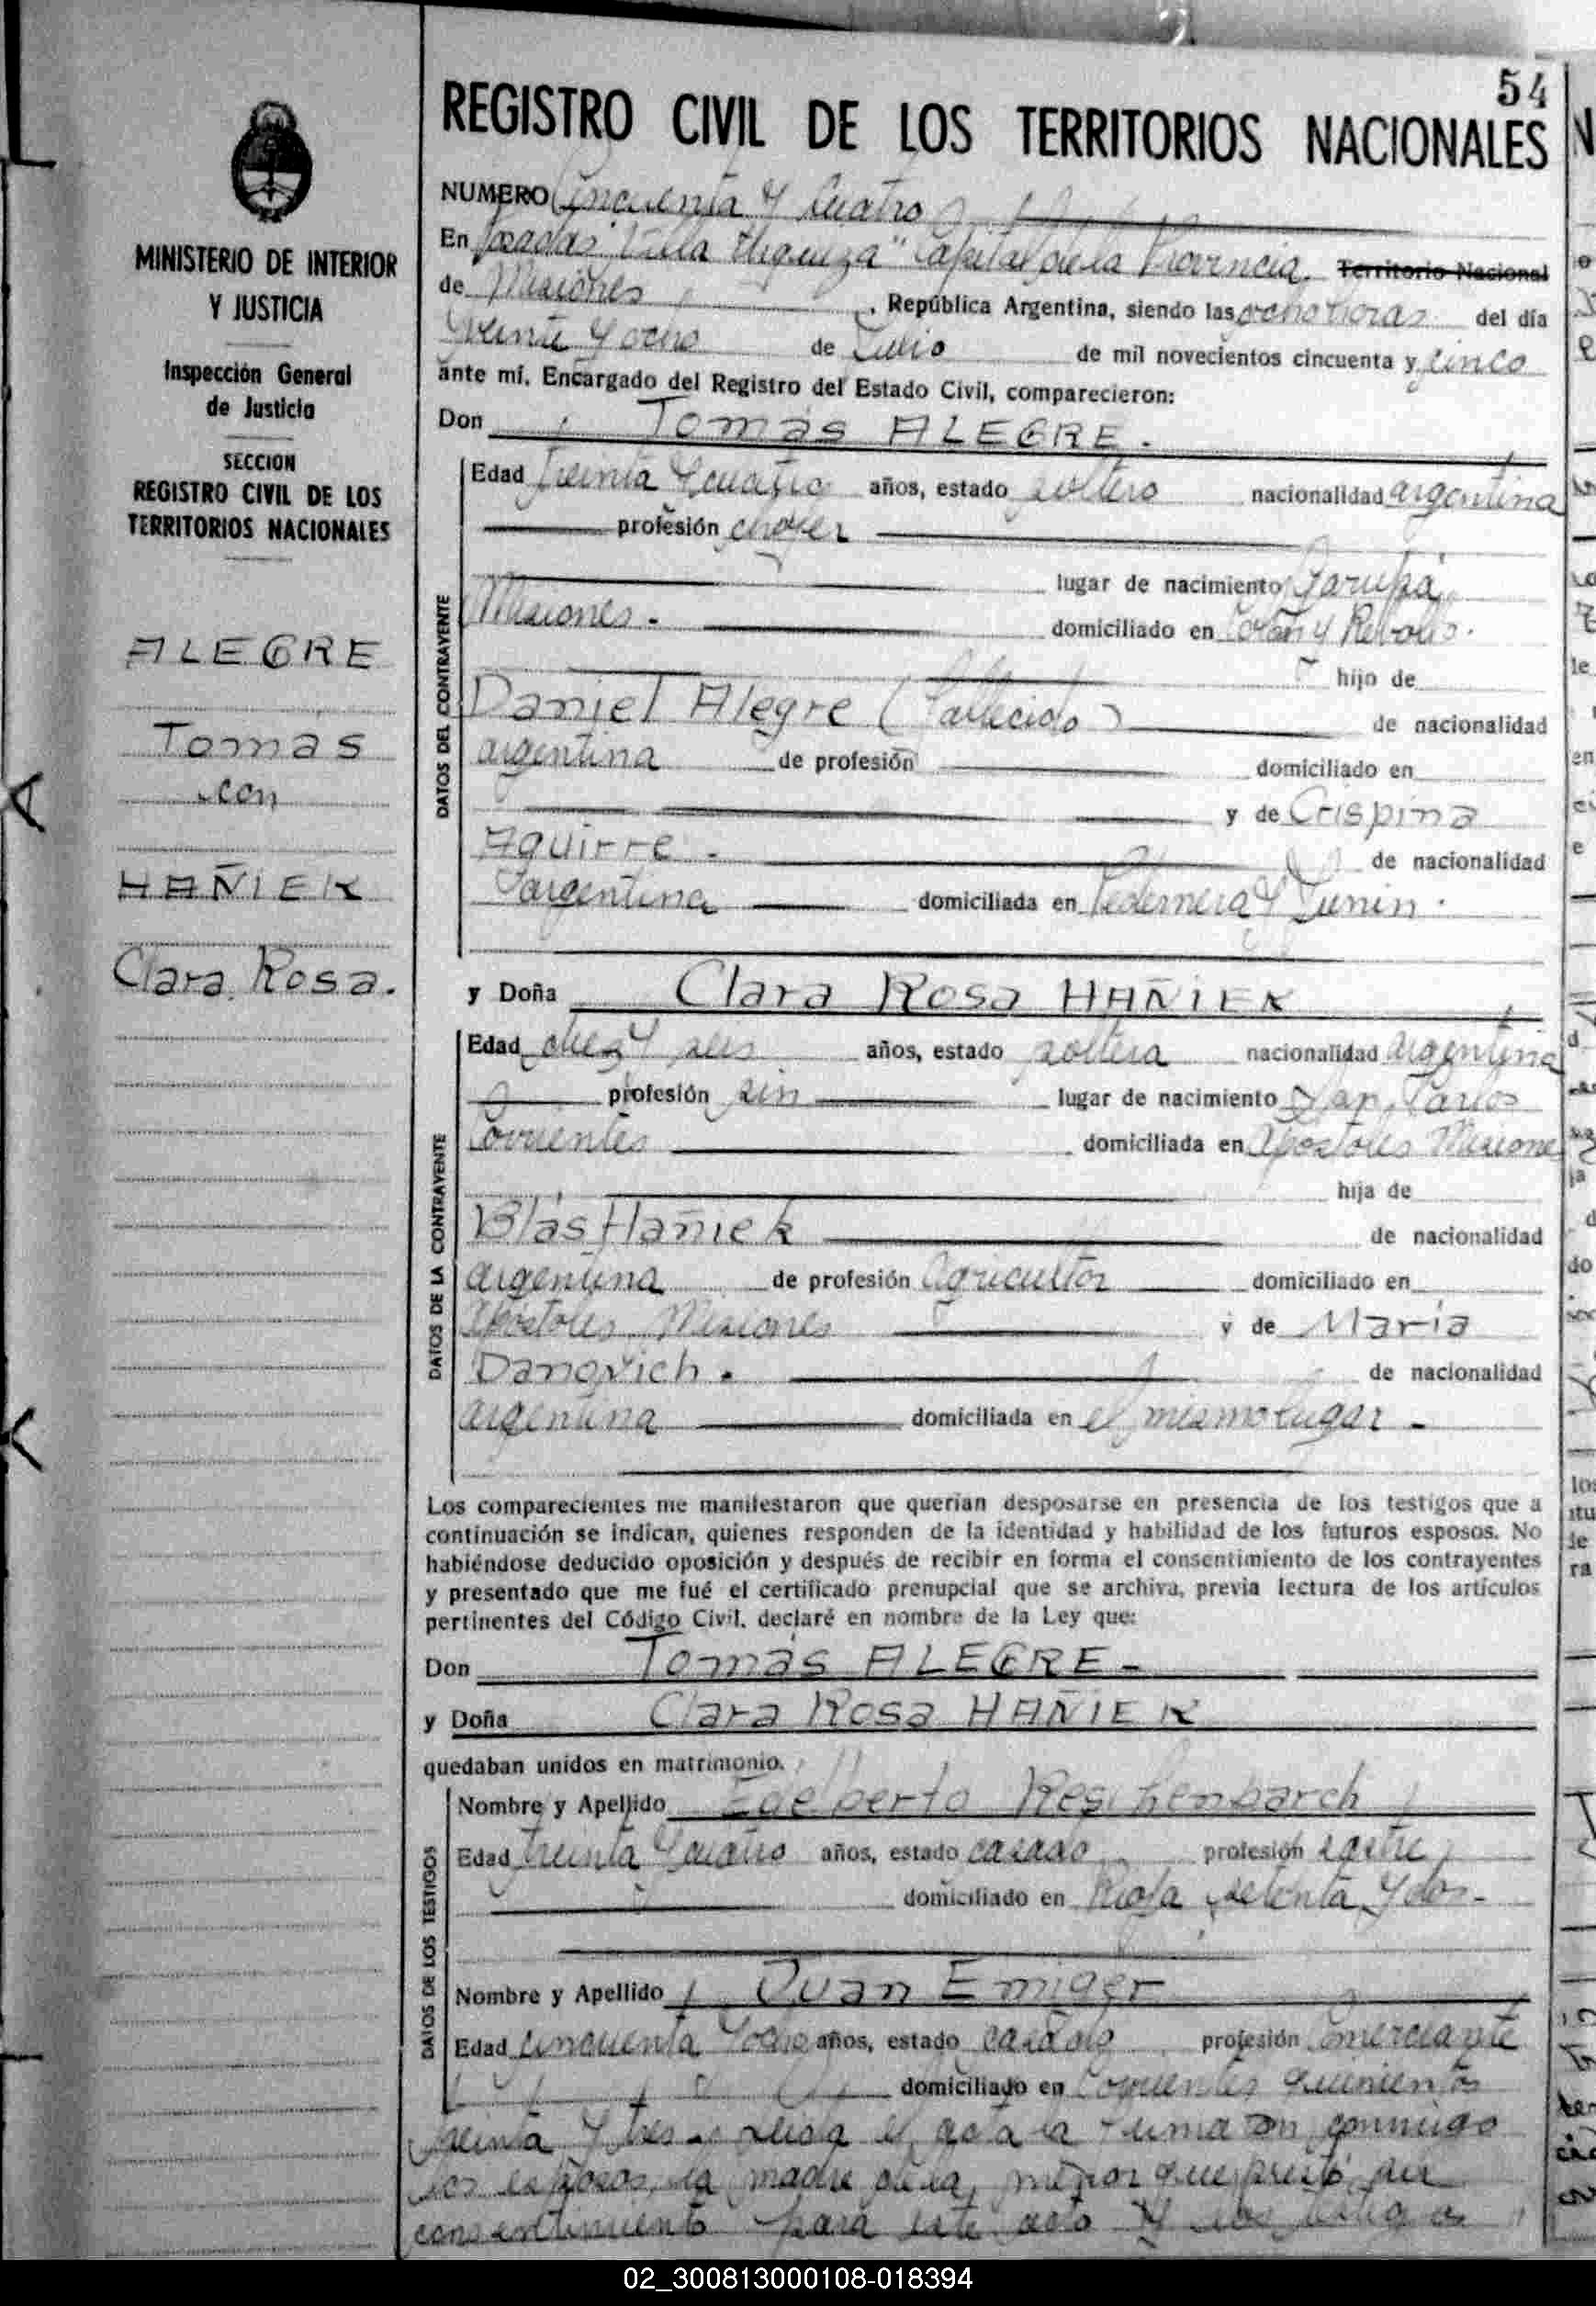 54
REGISTRO CIVIL DE LOS TERRITORIOS NACIONALES
MINISTERIO DE INTERIOR
Y JUSTICIA
Inspección General
de Justicia
SECCION
REGISTRO CIVIL DE LOS
TERRITORIOS NACIONALES
ALEGRE
Tomas
con
HAÑIEK
Clara Rosa.
NUMERO Cincuenta y Cuatro
En Posadas "Villa Urquiza" Capital de la Provincia. Territorio Nacional
de Misiones, República Argentina, siendo las ocho horas del día
Veinte y ocho de Julio de mil novecientos cincuenta y cinco
ante mí, Encargado del Registro del Estado Civil, comparecieron:
Don Tomás ALEGRE.
DATOS DEL CONTRAYENTE
Edad treinta y cuatro años, estado soltero nacionalidad argentina
profesión chofer
lugar de nacimiento Garupá
Misiones. domiciliado en y
hijo de
Daniel Alegre (fallecido) de nacionalidad
argentina de profesión domiciliado en
y de Crispina
Aguirre. de nacionalidad
argentina domiciliada en Pedernera y Junin.
y Doña Clara Rosa HAÑIEK
DATOS DE LA CONTRAYENTE
Edad diez y seis años, estado soltera nacionalidad argentina
profesión sin lugar de nacimiento San Carlos
Corrientes domiciliada en Apostoles Misiones
hija de
Blás Hañiek de nacionalidad
argentina de profesión Agricultor domiciliado en
Apostoles Misiones y de María
Danovich. de nacionalidad
argentina domiciliada en el mismo lugar.
Los comparecientes me manifestaron que querían desposarse en presencia de los testigos que a
continuación se indican, quienes responden de la identidad y habilidad de los futuros esposos. No
habiéndose deducido oposición y después de recibir en forma el consentimiento de los contrayentes
y presentado que me fué el certificado prenupcial que se archiva, previa lectura de los artículos
pertinentes del Código Civil, declaré en nombre de la Ley que:
Don Tomás ALEGRE-
y Doña Clara Rosa HAÑIEK
quedaban unidos en matrimonio.
DATOS DE LOS TESTIGOS
Nombre y Apellido Edelberto
Edad treinta y cuatro años, estado casado profesión sastre
domiciliado en Rioja setenta y dos-
Nombre y Apellido Juan Emiger
Edad cincuenta y ocho años, estado casado profesión Comerciante
domiciliado en Corrientes quinientos
treinta y tres. Leida el acta la firmaron conmigo
los esposos, la madre de la menor que prestó su
consentimiento para este acto y los testigos
02_300813000108-018394